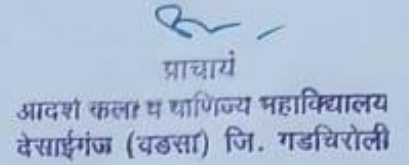 प्राचार्य
आदर्श कला व वाणिज्य महाविद्यालय
देसाईगंज (वडसा) जि. गडचिरोली